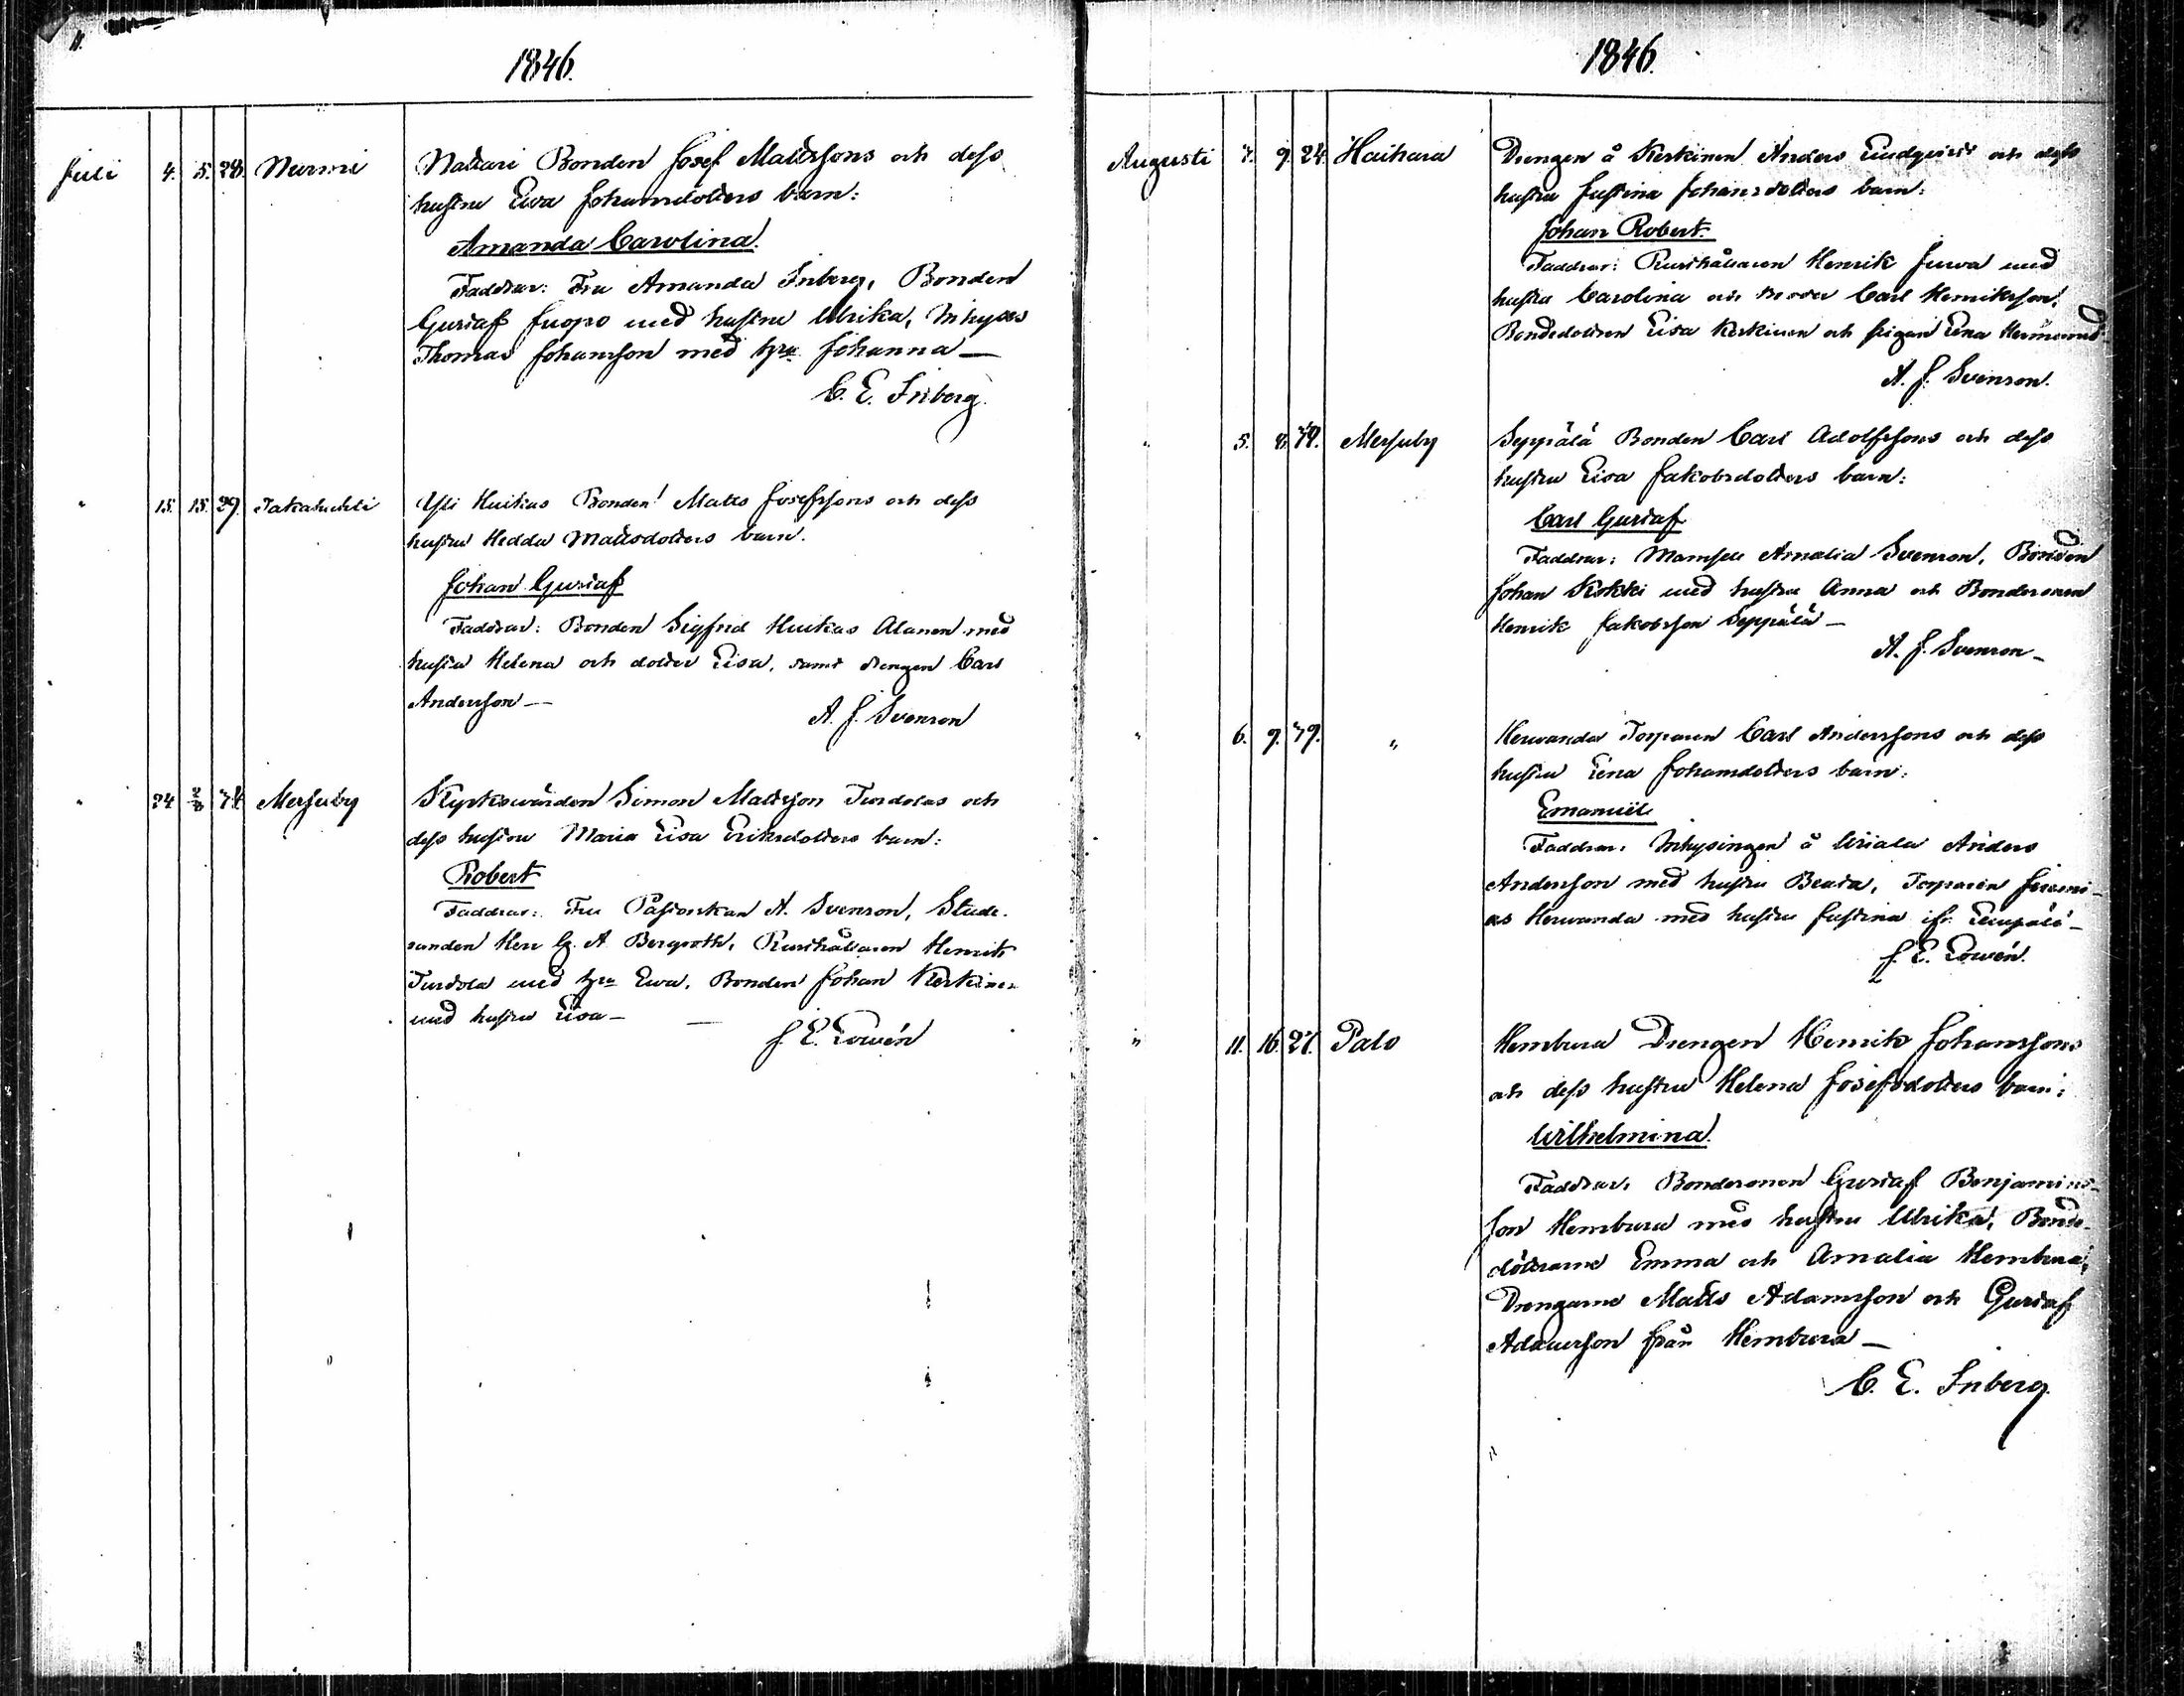 11.
1846.
Juli 4. 5. 28. Nurmi Nattari Bonden Josef Mattssons och dess
hustru Ewa Johansdotters barn:
Amanda Carolina.
Faddrar: Fru Amanda Inberg, Bonden
Gustaf Juopo med hustru Ulrika, Inhyses
Thomas Johansson med hru Johanna —
C. E. Inberg.
" 15. 15. 29. Takahuhti Yli Huikas Bonden Matts Josefssons och dess
hustru Hedda Mattsdotters barn.
Johan Gustaf
Faddrar: Bonden Sigfrid Huikas Alanen med
hustru Helena och dotter Lisa, samt drengen Carl
Andersson —
A. J. Svenson
" 24 2/8 Messuby Kyrkovärden Simon Mattsson Turdolas och
dess hustru Maria Lisa Eriksdotters barn:
Robert
Faddrar: Fru Pastorskan A. Svenson, Stude-
randen Herr G. A. Bergroth, Rusthållaren Henrik
Turdola med hru Ewa, Bonden Johan Kerkinen
med hustru Lisa —
J. E. Lowén
1846.
Augusti 9. 24. Haihara Drengen å Kerkinen Anders Lindqvists och dess
hustru Justina Johansdotters barn:
Johan Robert.
Faddrar: Rusthållaren Henrik Juwa med
hustru Carolina och Carl Henriksson,
Bondedottren Lisa Kerkinen och pigan Lena
A. J. Svenson.
" 5. Messuby Seppälä Bonden Carl Adolfssons och dess
hustru Lisa Jakobsdotters barn:
Carl Gustaf
Faddrar: Mamsell Amalia Svenson, Bonden
Johan Kokki med hustru Anna och Bondesonen
Henrik Jakobsson Seppälä —
A. J. Svenson —
" 6. 9. 79. " Herwanda Torparen Carl Anderssons och dess
hustru Lena Johansdotters barn:
Emanuel
Faddrar: Inhysingen å Uriala Anders
Andersson med hustru Beata, Torparen Jeremi-
as Herwanda med hustru Justina
J. E. Lowén.
" 11. 16. 27. Palo Hembura Drengen Henrik Johanssons
och dess hustru Helena Josefsdotters barn:
Wilhelmina.
Faddrar: Bondesonen Gustaf Benjamins-
son Hembura med hustru Ulrika, Bonde-
döttrarne Emma och Amalia Hembura,
Drengarne Matts Adamsson och Gustaf
Adamsson från Hembura —
C. E. Inberg.